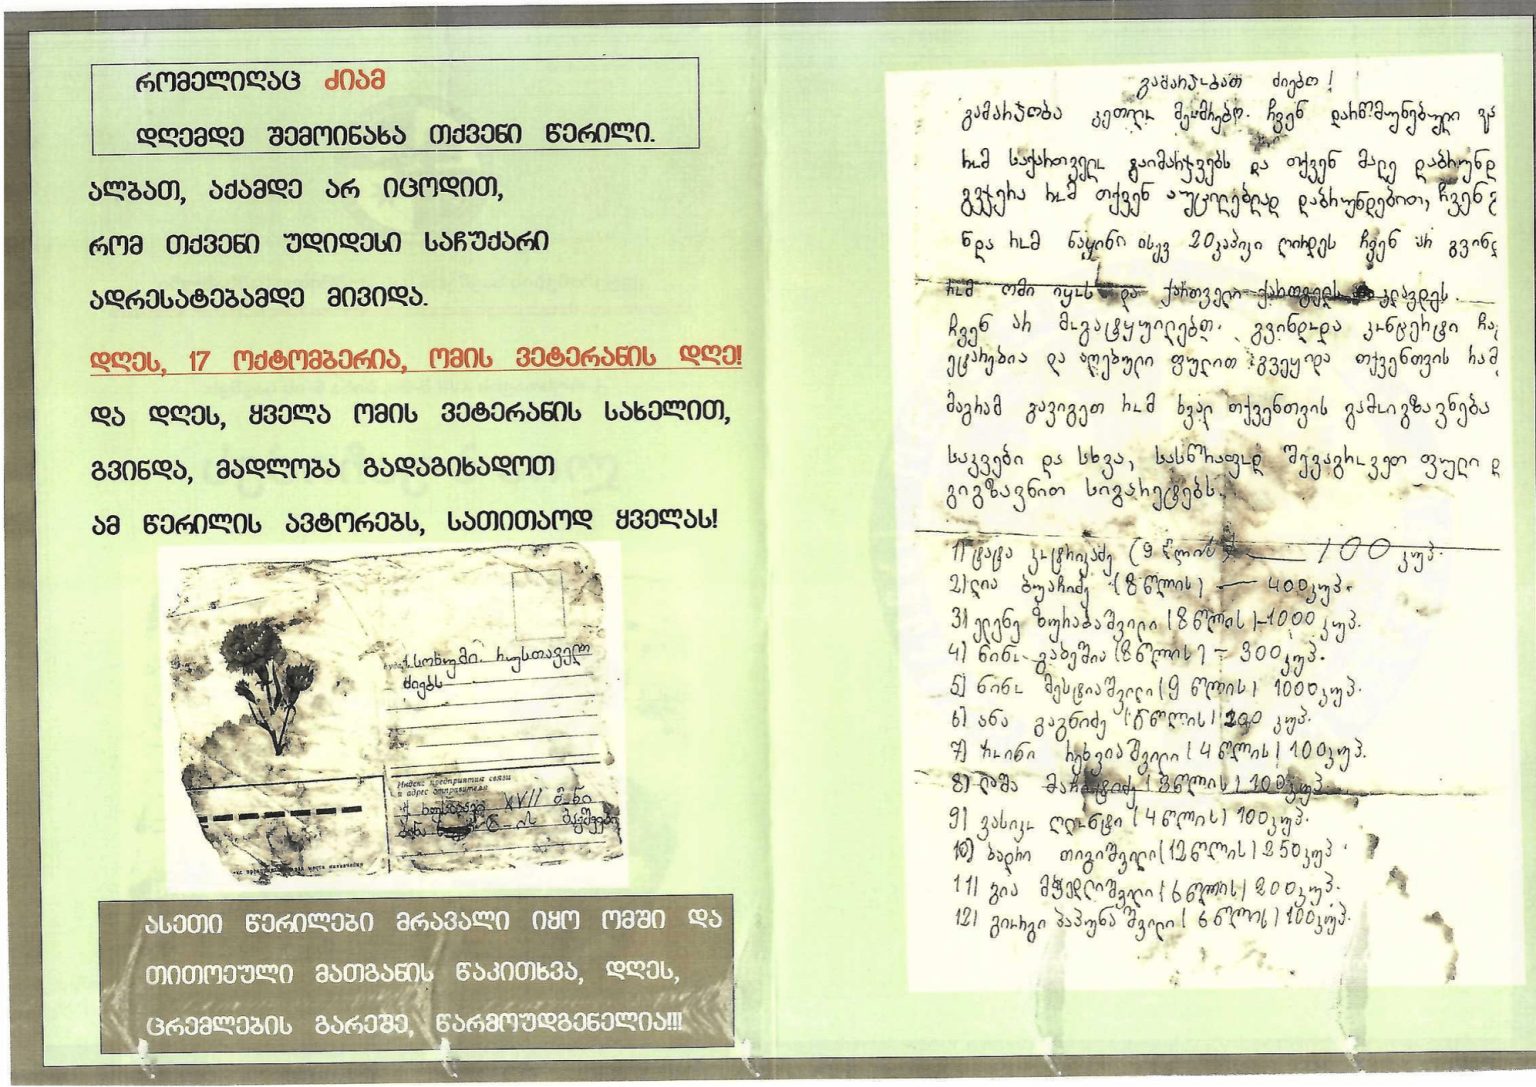 რომელიღაც ძიამ
დღემდე შემოინახა თქვენი წერილი.
ალბათ, აქამდე არ იცოდით,
რომ თქვენი უდიდესი საჩუქარი
ადრესატებამდე მივიდა.
დღეს, 17 ოქტომბერია, ომის ვეტერანის დღე!
და დღეს, ყველა ომის ვეტერანის სახელით,
გვინდა, მადლობა გადაგიხადოთ
ამ წერილის ავტორებს, სათითაოდ ყველას!
ქ. სოხუმი. რუსთაველი
ძიებს
Индекс предприятия связи
и адрес отправителя
XVII მ-ნი
ბინა
ასეთი წერილები მრავალი იყო ომში და
თითოეული მათგანის წაკითხვა, დღეს,
ცრემლების გარეშე, წარმოუდგენელია!!!
გამარჯობათ ძიებო!
გამარჯობა კეთილო მეომრებო. ჩვენ დარწმუნებული ვა
რომ საქართველო გაიმარჯვებს და თქვენ მალე დაბრუნდ
გვჯერა რომ თქვენ აუცილებლად დაბრუნდებით, ჩვენ გ
ნდა რომ ნაყინი ისევ 20 კაპიკი ღირდეს ჩვენ არ გვინდ
რომ ომი იყოს და ქართველი ქართველს კლავდეს.
ჩვენ არ მოგატყუილებთ. გვინდოდა კონცერტი ჩა
ეტარებია და აღებული ფულით გვეყიდა თქვენთვის რამ
მაგრამ გავიგეთ რომ ხვალ თქვენთვის გამოიგზავნება
საკვები და სხვა, სასწრაფოდ შევაგროვეთ ფული დ
გიგზავნით სიგარეტებს.
1) ტატა კოტრიკაძე (9 წლის) — 100 კუპ.
2) ლია ბუაჩიძე (8 წლის) — 400 კუპ.
3) ელენე ზურაბაშვილი (8 წლის) — 1000 კუპ.
4) ნინო გაბეშია (8 წლის) — 300 კუპ.
5) ნინო მესტიაშვილი (9 წლის) 1000 კუპ.
6) ანა გაგნიძე (8 წლის) 200 კუპ.
7) რეხვიაშვილი (4 წლის) 100 კუპ.
8) ლაშა (3 წლის) 100 კუპ.
9) ვასიკო ღლონტი (4 წლის) 100 კუპ.
10) ბადრი თიგიშვილი (12 წლის) 250 კუპ.
11) გია მჭედლიშვილი (6 წლის) 200 კუპ.
12) გიორგი პაპუნაშვილი (6 წლის) 100 კუპ.